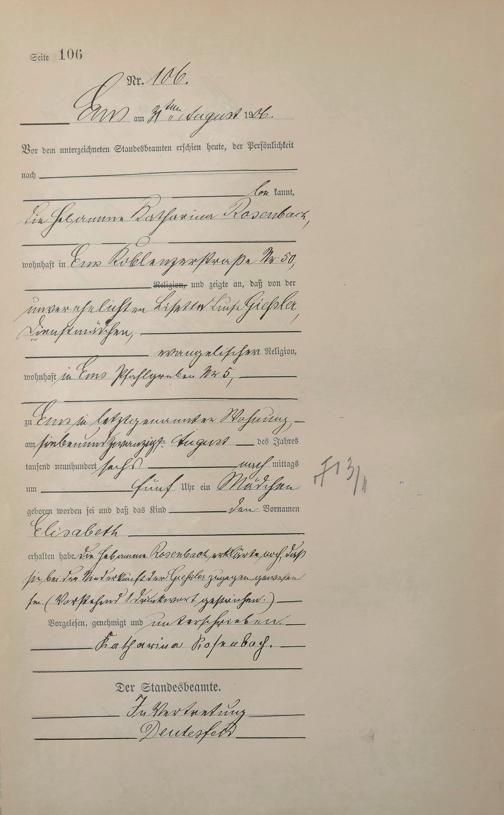 Seite 106
Nr. 106.
Ems am 31ten August 1906.
Vor dem unterzeichneten Standesbeamten erschien heute, der Persönlichkeit
nach
be kannt,
die Hebamme Katharina Rosenbach,
wohnhaft in Ems Koblenzerstraße Nr 50,
Religion, und zeigte an, daß von der
unverehelichten Lisette Luise Gießler,
Dienstmädchen,
evangelischer Religion,
wohnhaft in Ems Pfahlgraben Nr 5,
zu Ems in letztgenannter Wohnung,
am siebenundzwanzigsten August des Jahres
tausend neunhundert sechs nach mittags
um fünf Uhr ein Mädchen
geboren worden sei und daß das Kind den Vornamen
Elisabeth
erhalten habe. Die Hebamme Rosenbach erklärte noch, daß
sie bei der Niederkunft der Gießler zugegen gewesen
sei. (Vorstehend 1 Druckwort gestrichen.)
Vorgelesen, genehmigt und unterschrieben.
Katharina Rosenbach.
Der Standesbeamte.
In Vertretung